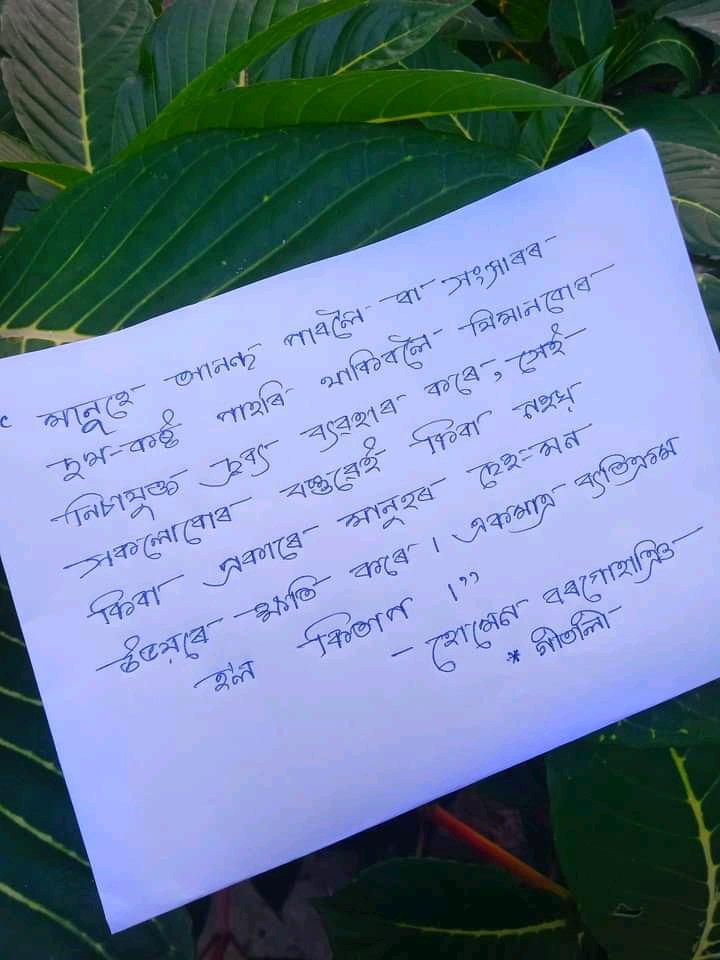 “মানুহে আনন্দ পাবলৈ বা সংসাৰৰ
দুখ-কষ্ট পাহৰি থাকিবলৈ যিমানবোৰ
নিচাযুক্ত দ্ৰব্য ব্যৱহাৰ কৰে, সেই
সকলোবোৰ বস্তুৱেই কিবা নহয়
কিবা প্ৰকাৰে মানুহৰ দেহ-মন
উভয়ৰে ক্ষতি কৰে। একমাত্ৰ ব্যতিক্ৰম
হ'ল কিতাপ।”
- হোমেন বৰগোহাঞি
* গীতালী